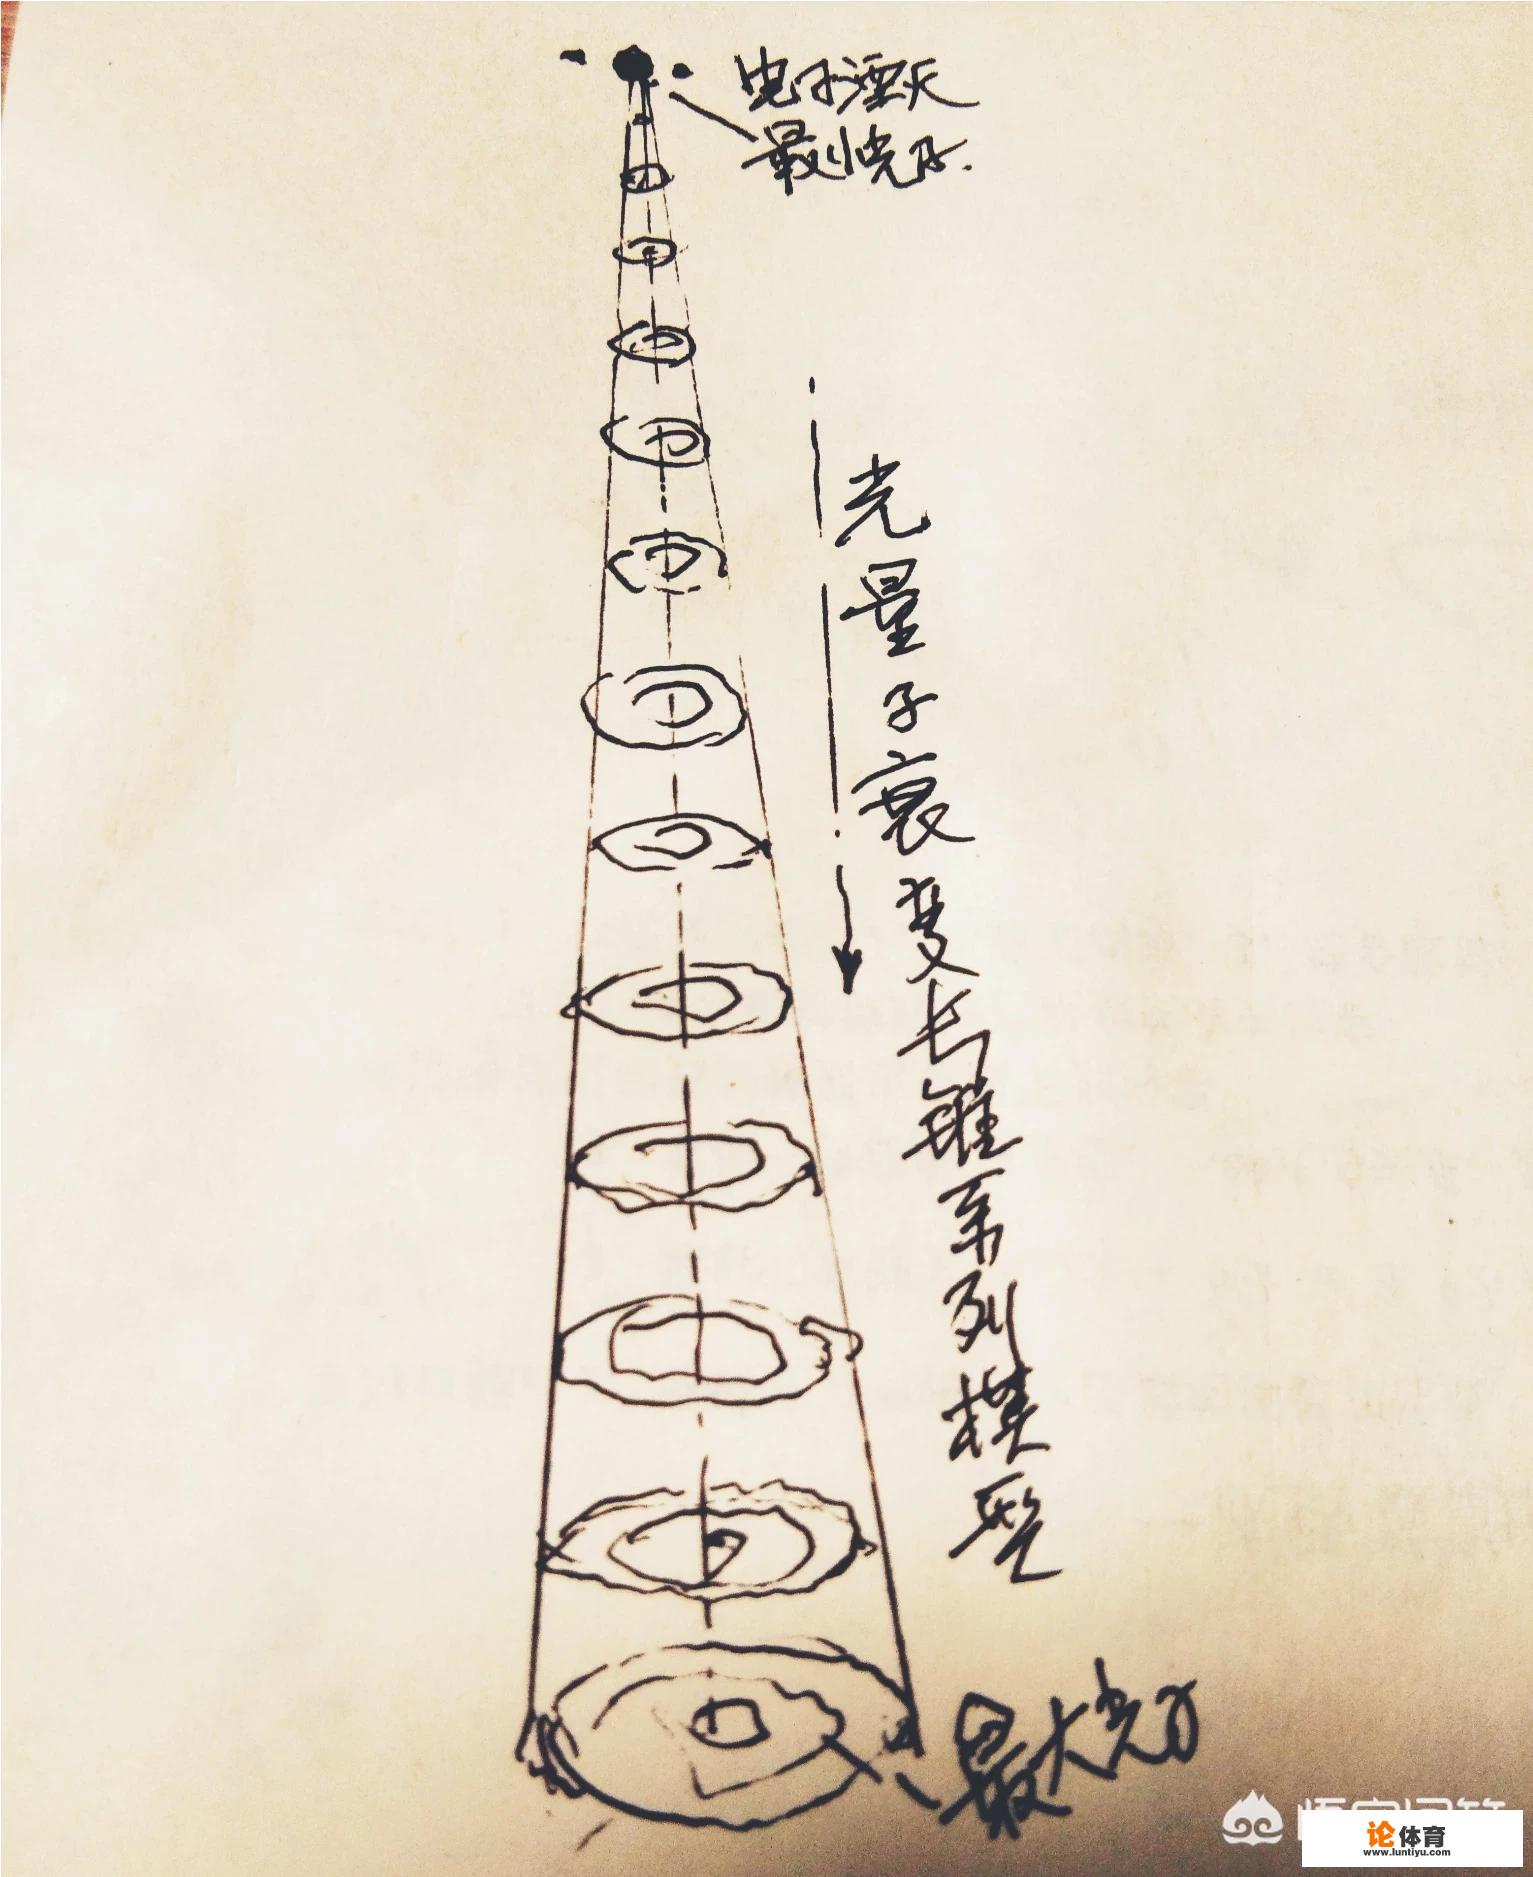 电子湮灭
最小光子.
光量子衰变长锥系列模型
最大光子
论体育
www.luntiyu.com